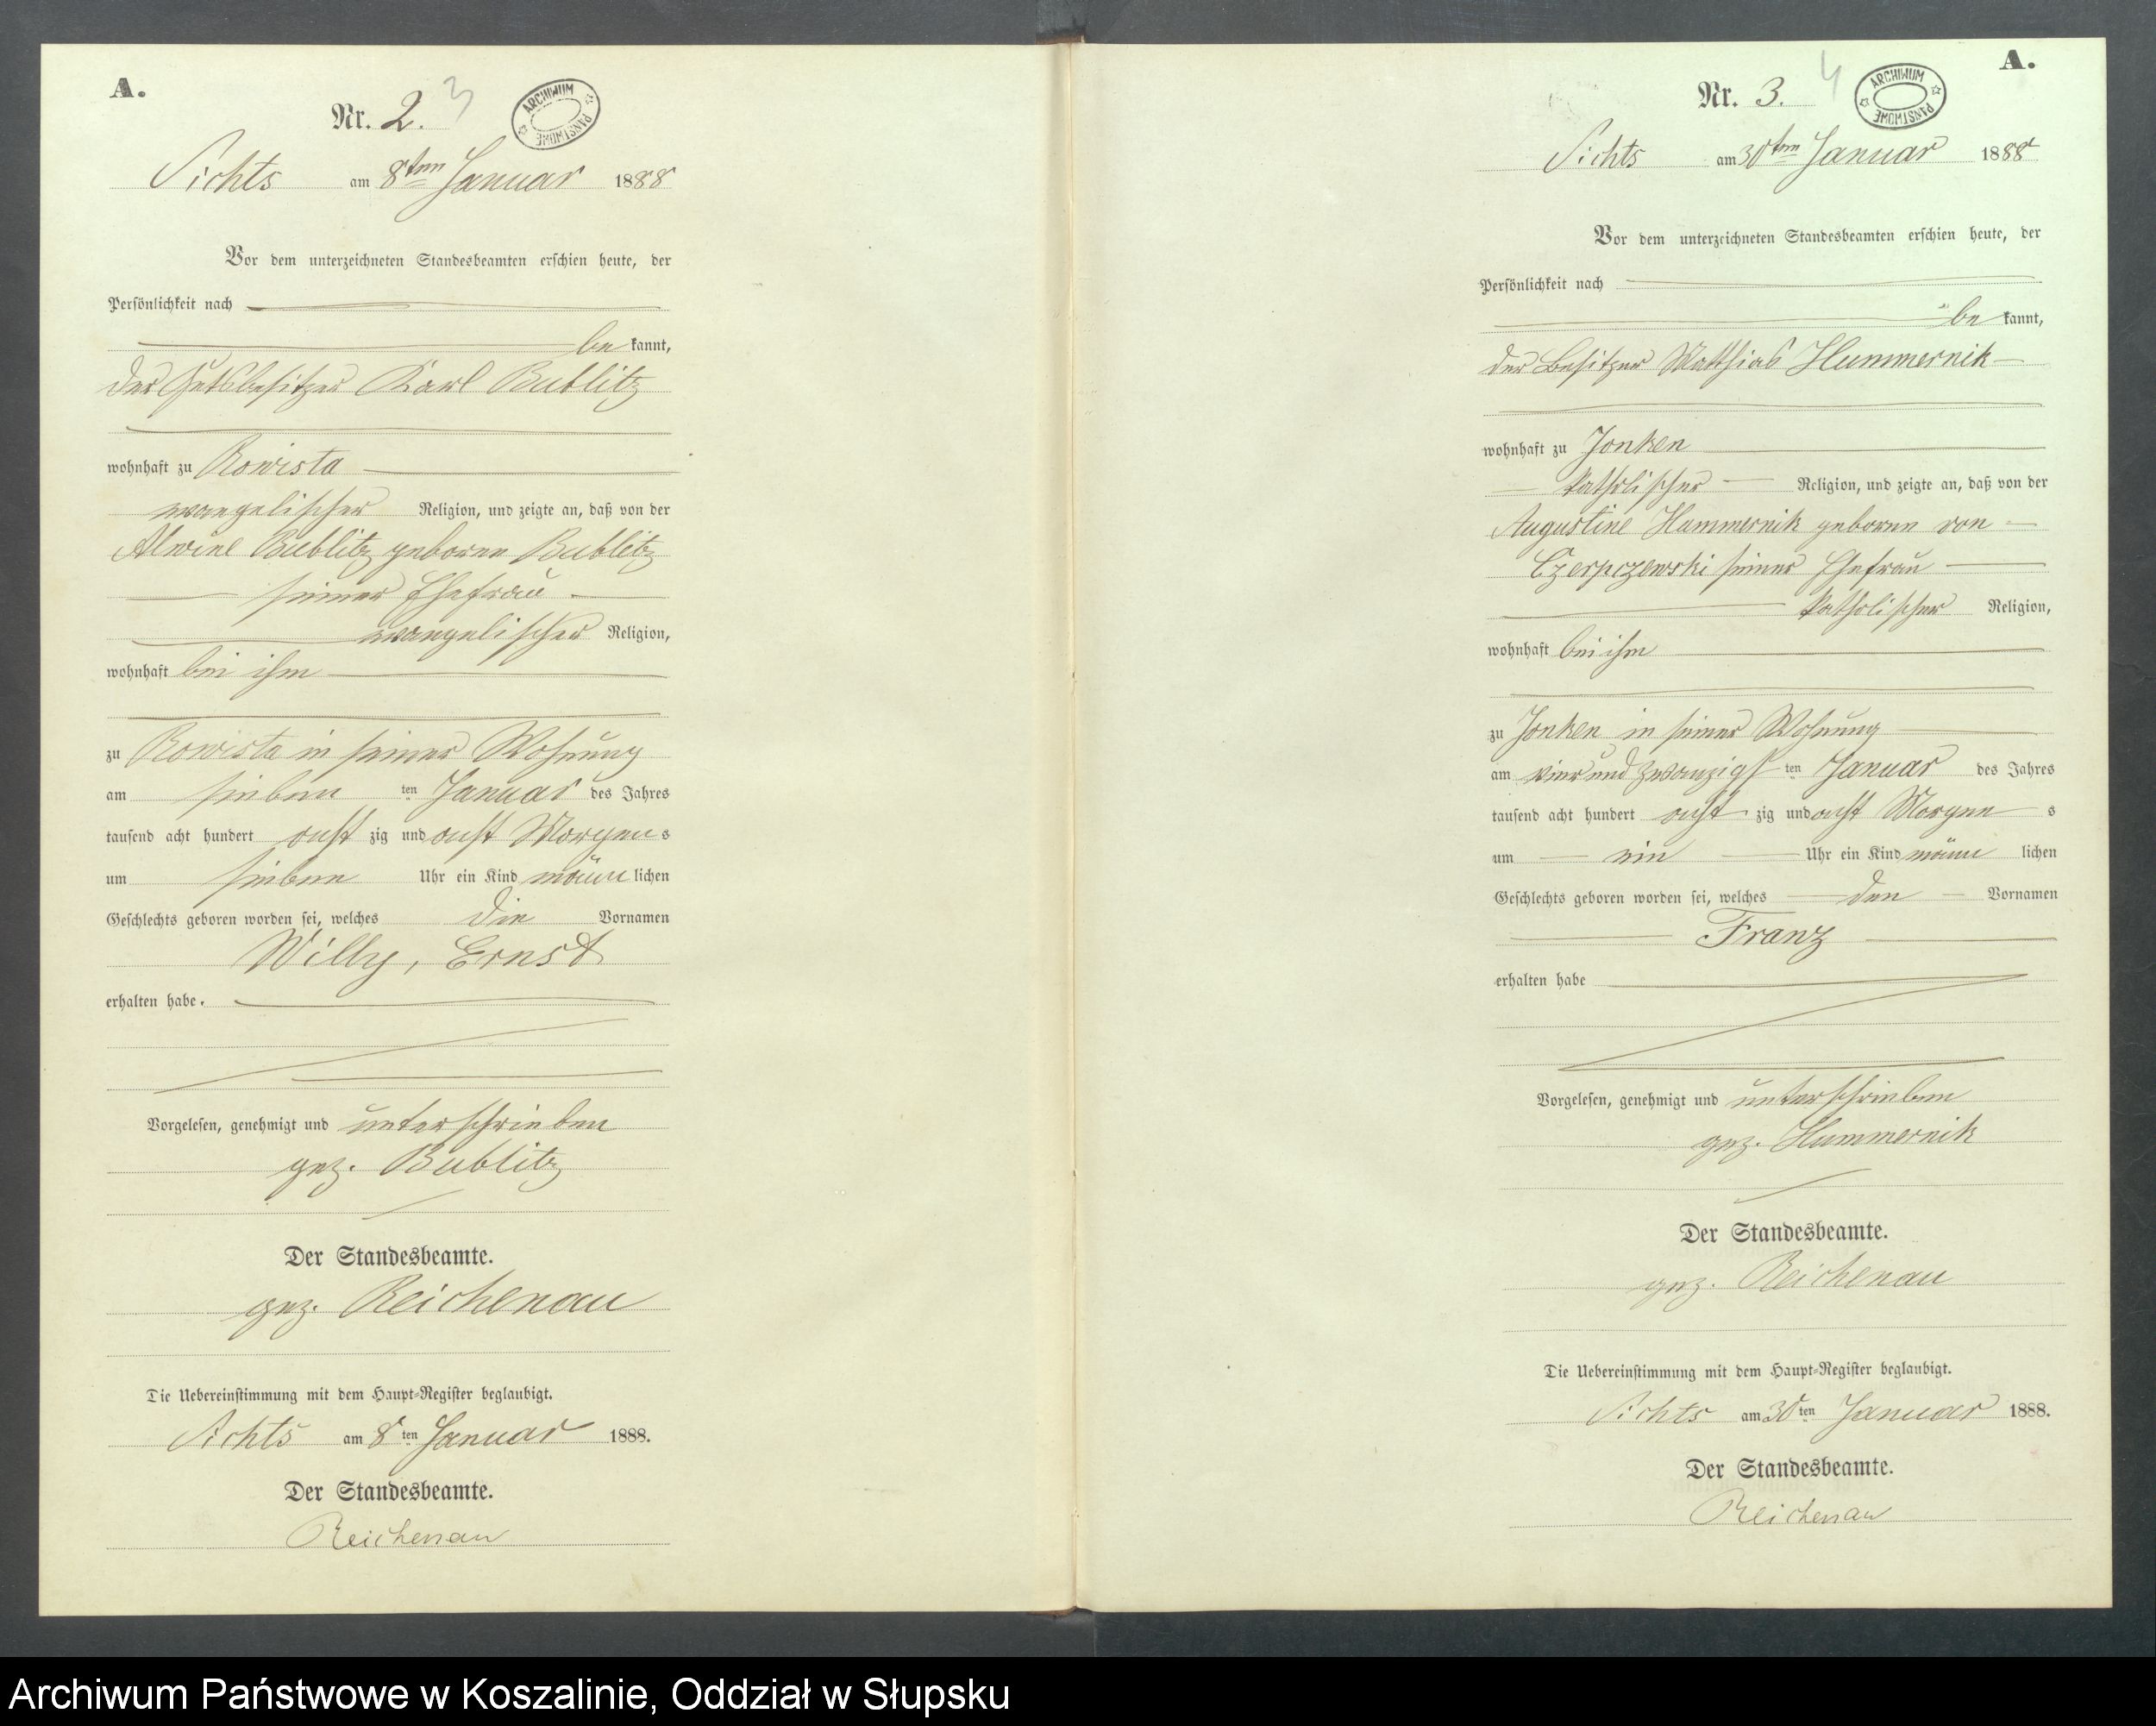 A.
Nr. 2. 3
ARCHIWUM PAŃSTWOWE
Sichts am 8ten Januar 1888
Vor dem unterzeichneten Standesbeamten erschien heute, der
Persönlichkeit nach
be kannt,
der Gutsbesitzer Karl Bublitz
wohnhaft zu Rowista
evangelischer Religion, und zeigte an, daß von der
Alwine Bublitz geborene Bublitz
seiner Ehefrau
evangelischer Religion,
wohnhaft bei ihm
zu Rowista in seiner Wohnung
am sieben ten Januar des Jahres
tausend acht hundert acht zig und acht Morgens
um sieben Uhr ein Kind männ lichen
Geschlechts geboren worden sei, welches die Vornamen
Willy, Ernst
erhalten habe.
Vorgelesen, genehmigt und unterschrieben
gez. Bublitz
Der Standesbeamte.
gez. Reichenau
Die Uebereinstimmung mit dem Haupt-Register beglaubigt.
Sichts am 8ten Januar 1888.
Der Standesbeamte.
Reichenau
A.
Nr. 3. 4
ARCHIWUM PAŃSTWOWE
Sichts am 30ten Januar 1888
Vor dem unterzeichneten Standesbeamten erschien heute, der
Persönlichkeit nach
be kannt,
der Besitzer Matthias Hummernik
wohnhaft zu Jonken
katholischer Religion, und zeigte an, daß von der
Augustine Hummernik geborene von
Czerpczewski seiner Ehefrau
katholischer Religion,
wohnhaft bei ihm
zu Jonken in seiner Wohnung
am vier und zwanzigs ten Januar des Jahres
tausend acht hundert acht zig und acht Morgens
um ein Uhr ein Kind männ lichen
Geschlechts geboren worden sei, welches den Vornamen
Franz
erhalten habe
Vorgelesen, genehmigt und unterschrieben
gez. Hummernik
Der Standesbeamte.
gez. Reichenau
Die Uebereinstimmung mit dem Haupt-Register beglaubigt.
Sichts am 30ten Januar 1888.
Der Standesbeamte.
Reichenau
Archiwum Państwowe w Koszalinie, Oddział w Słupsku